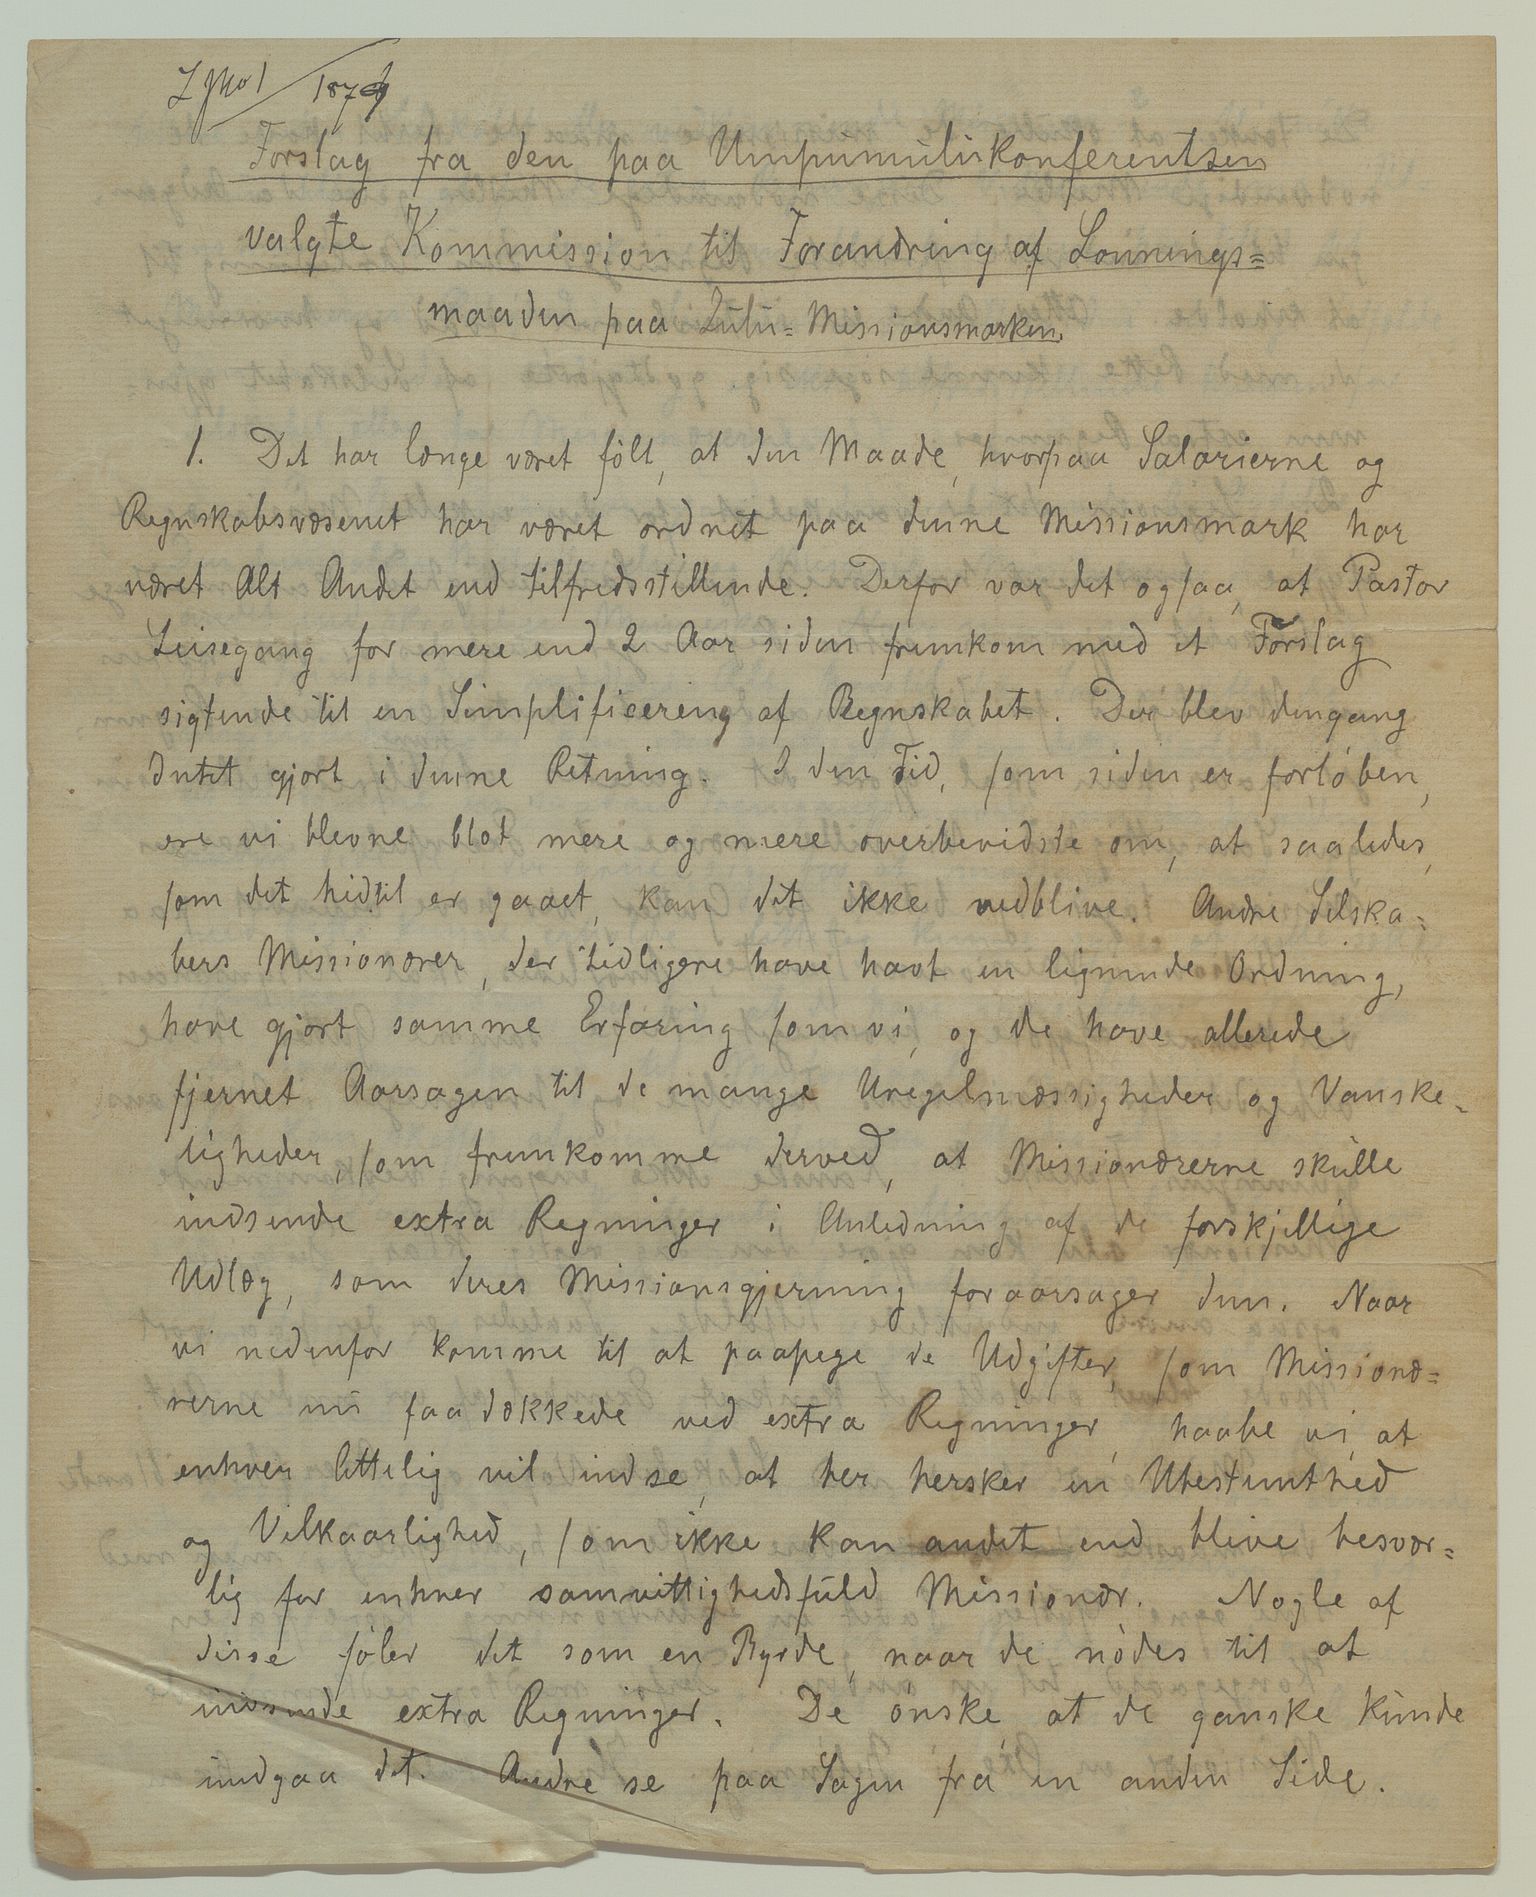 Forslag fra den paa Umpumulukonferentsen
valgte Kommission til Forandring af Lønnings=
maaden paa Zulu=Missionsmarken.
1. Det har længe været følt, at den Maade, hvorpaa Salarierne og
Regnskabsvæsenet har været ordnet paa denne Missionsmark har
været Alt Andet end tilfredsstillende. Derfor var det ogsaa, at Pastor
Leisegang for mere end 2 Aar siden fremkom med et Forslag
sigtende til en Simplificering af Regnskabet. Der blev dengang
Intet gjort i denne Retning. I den Tid, som siden er forløben,
ere vi blevne blot mere og mere overbevidste om, at saaledes,
som det hidtil er gaaet, kan det ikke vedblive. Andre Selska=
bers Missionærer, der tidligere have havt en lignende Ordning,
have gjort samme Erfaring som vi, og de have allerede
fjernet Aarsagen til de mange Uregelmæssigheder og Vanske=
ligheder, som fremkomme derved, at Missionærerne skulle
indsende extra Regninger i Anledning af de forskjellige
Udlæg, som deres Missionsgjerning foraarsager dem. Naar
vi nedenfor komme til at paapege de Udgifter, som Missionæ=
rerne nu faa dækkede ved extra Regninger, haabe vi, at
enhver lettelig vil indse, at her hersker en Ubestemthed
og Vilkaarlighed, som ikke kan andet end blive besvær=
lig for enhver samvittighedsfuld Missionær. Nogle af
disse føler det som en Byrde, naar de nødes til at
indsende extra Regninger. De ønske at de ganske kunde
undgaa det. Andre se paa Sagen fra en anden Side.